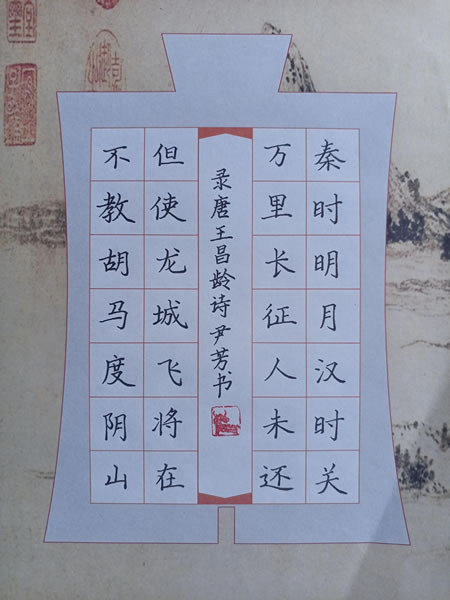 秦时明月汉时关
万里长征人未还
录唐王昌龄诗尹芳书
但使龙城飞将在
不教胡马度阴山